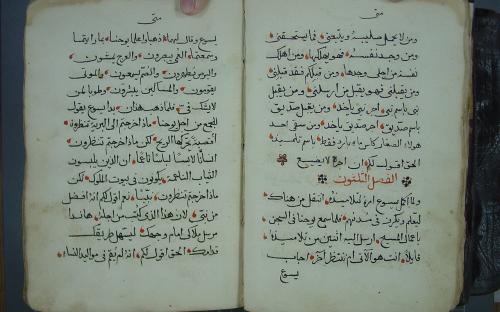 متى
ومن لا يحمل صليبه ويتبعني فما يستحقني
ومن وجد نفسه فهو يهلكها ومن اهلك
نفسه من اجلي وجدها ومن قبلكم فقد قبلني
ومن يقبلني فهو يقبل من ارسلني ومن يقبل
نبي باسم نبي اجر نبي ياخذ ومن يقبل صديق
باسم صديق اجر صديق ياخذ ومن سقى احد
هولاء الصغار كاس ما بارد فقط باسم تلميذ
الحق اقول لكم ان اجره لا يضيع
الفصل الثلثون
ولما اكمل يسوع امره لتلاميذه انتقل من هناك
ليعلم ويكرز في مدنهم فلما سمع يوحنا في السجن
باعمال المسيح ارسل اليه اثنين من تلاميذه
قايلا انت هو الاتي ام ننتظر اخر اجاب
يسوع
متى
يسوع وقال لهما اذهبا واعلما يوحنا بما رايتما
وسمعتما العمي يبصرون والعرج يمشون
والبرص يطهرون والصم يسمعون والموتى
يقومون والمساكين يبشرون وطوبا لمن
لا يشك في فلما ذهب هذان بدا يسوع يقول
للجمع من اجل يوحنا ماذا خرجتم الى البرية تنظرون
اقصبة تحركها الريح لكن ماذا خرجتم تنظرون
انسانا لابسا لباسا ناعما ان الذين يلبسون
الثياب الناعمة يكونون في بيوت الملوك لكن
ماذا خرجتم تنظرون نبيا نعم اقول لكم انه افضل
من نبي لان هذا الذي كتب من اجله هانذا
مرسل ملاكي امام وجهك ليسهل طريقك
قدامك الحق اقول لكم انه لم يقم في مواليد النساء